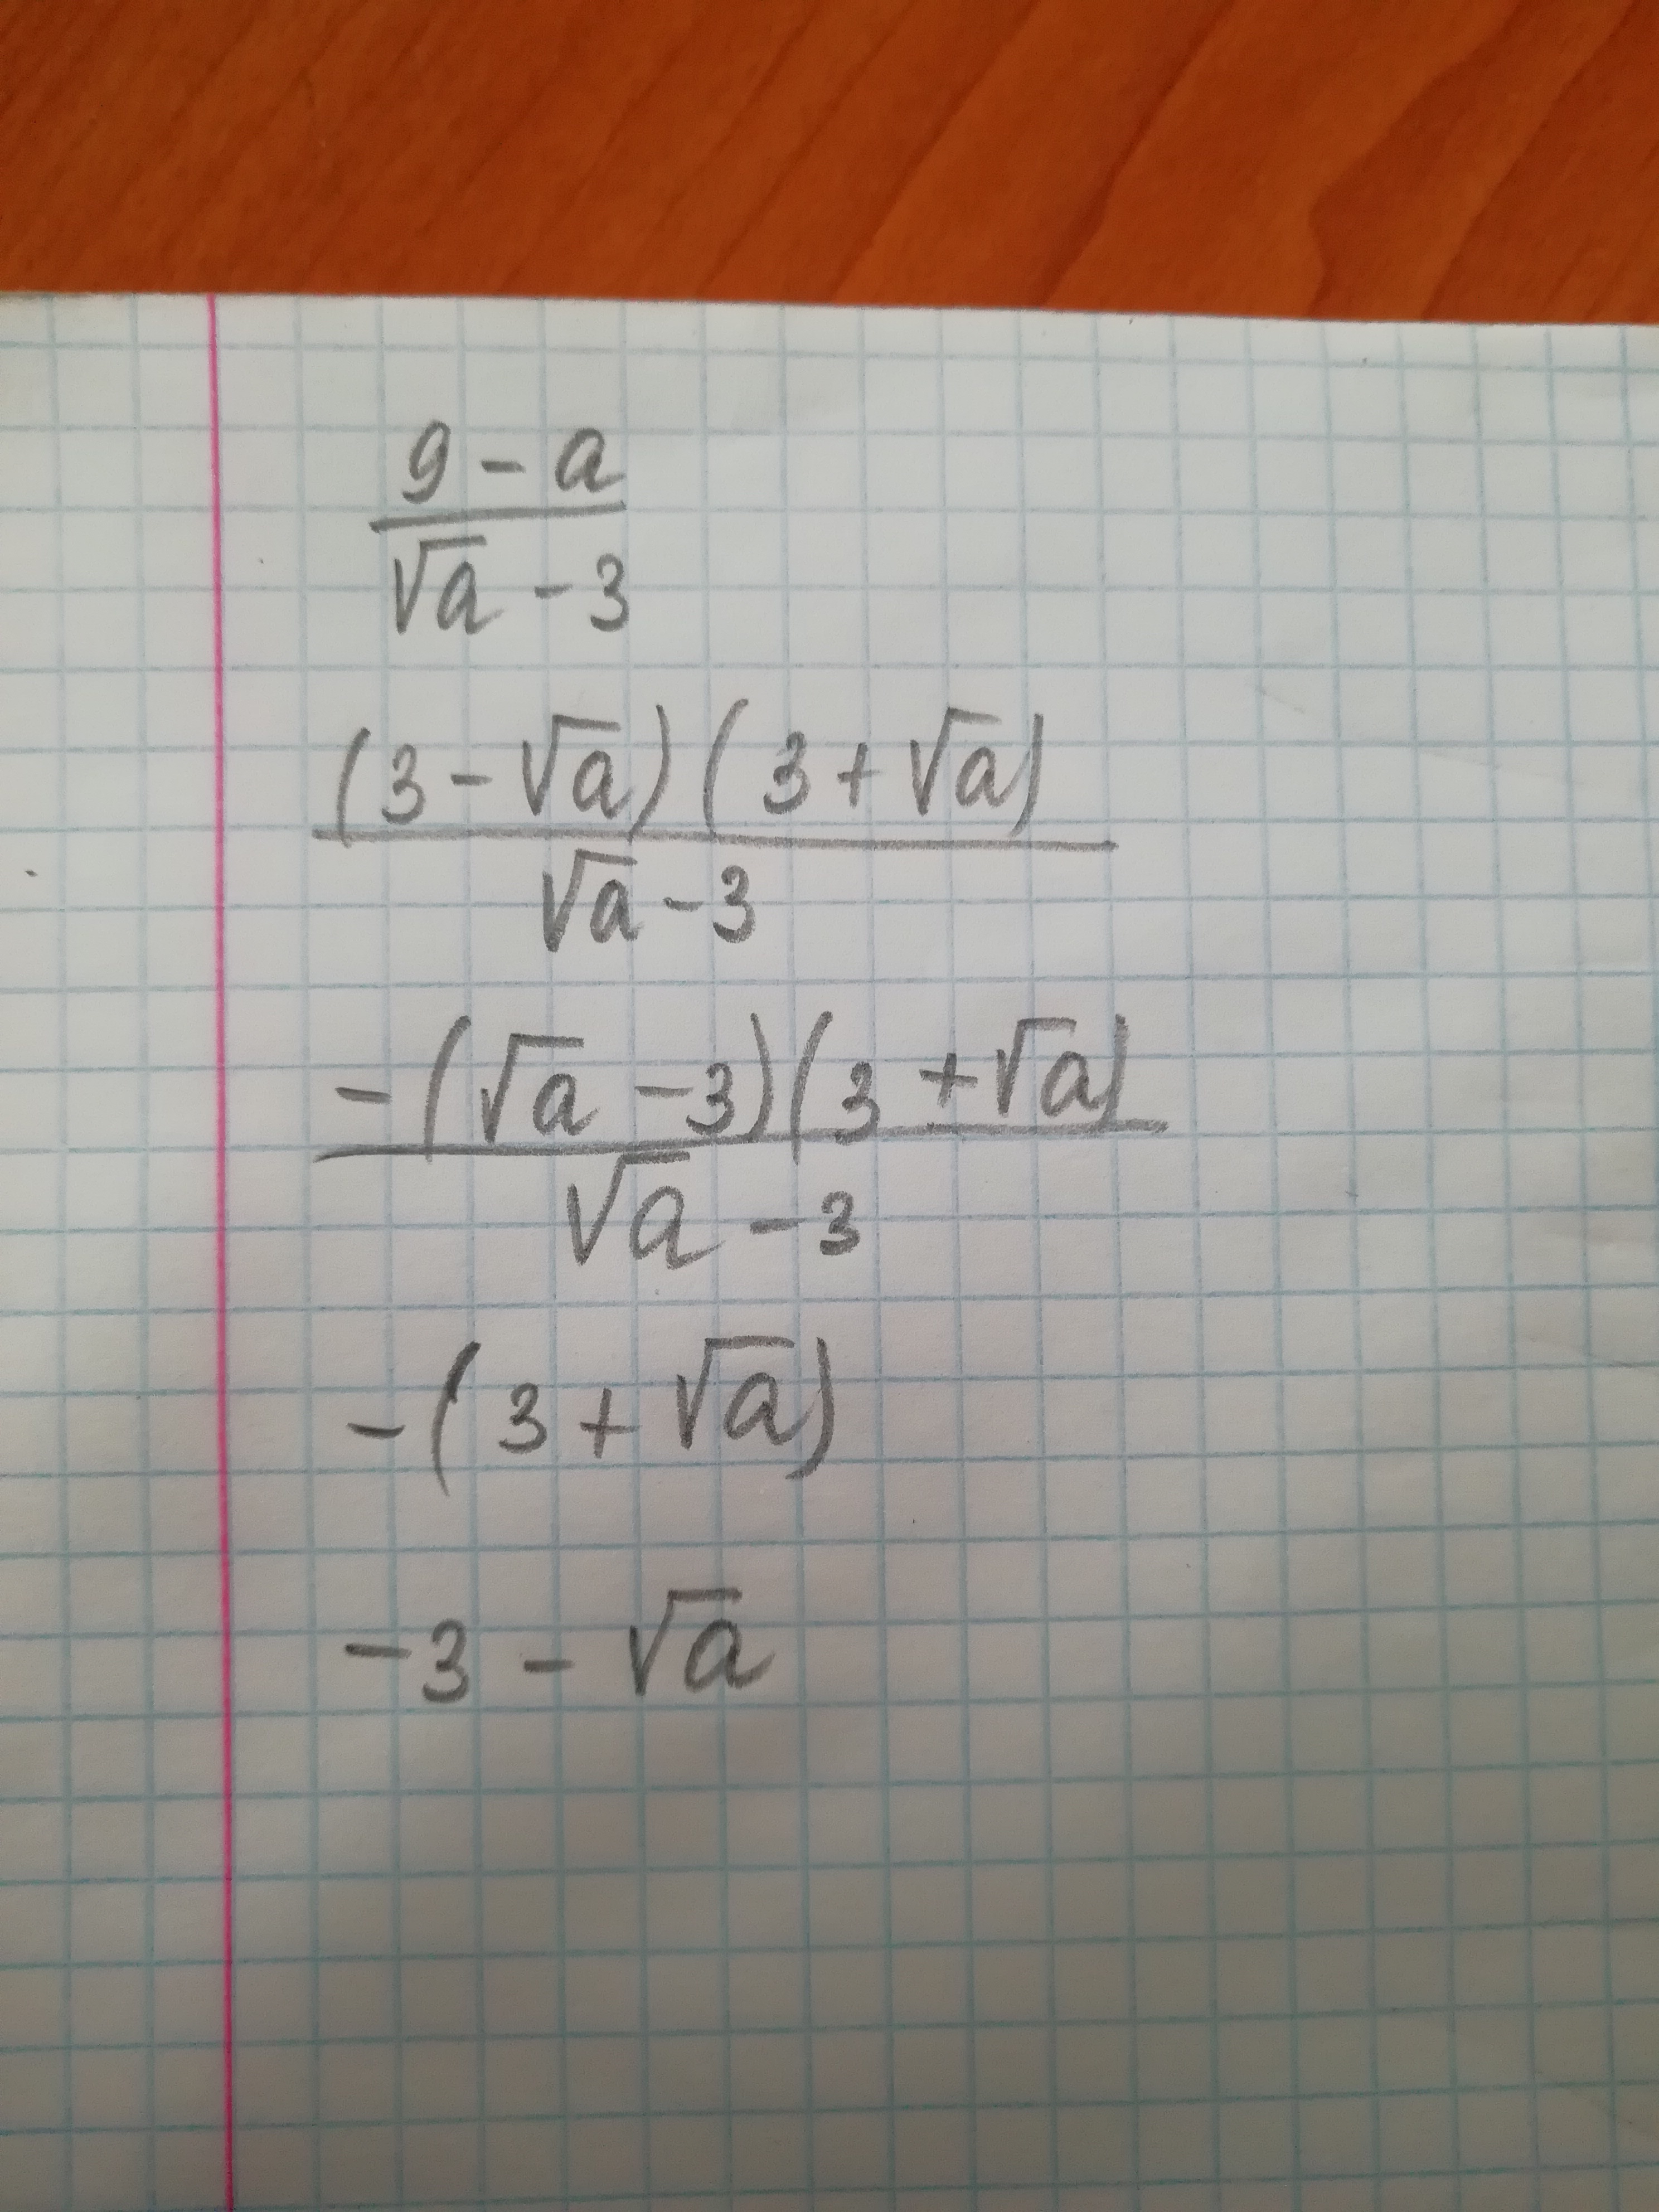 9 - a
√a - 3
(3 - √a)(3 + √a)
√a - 3
-(√a - 3)(3 + √a)
√a - 3
-(3 + √a)
-3 - √a